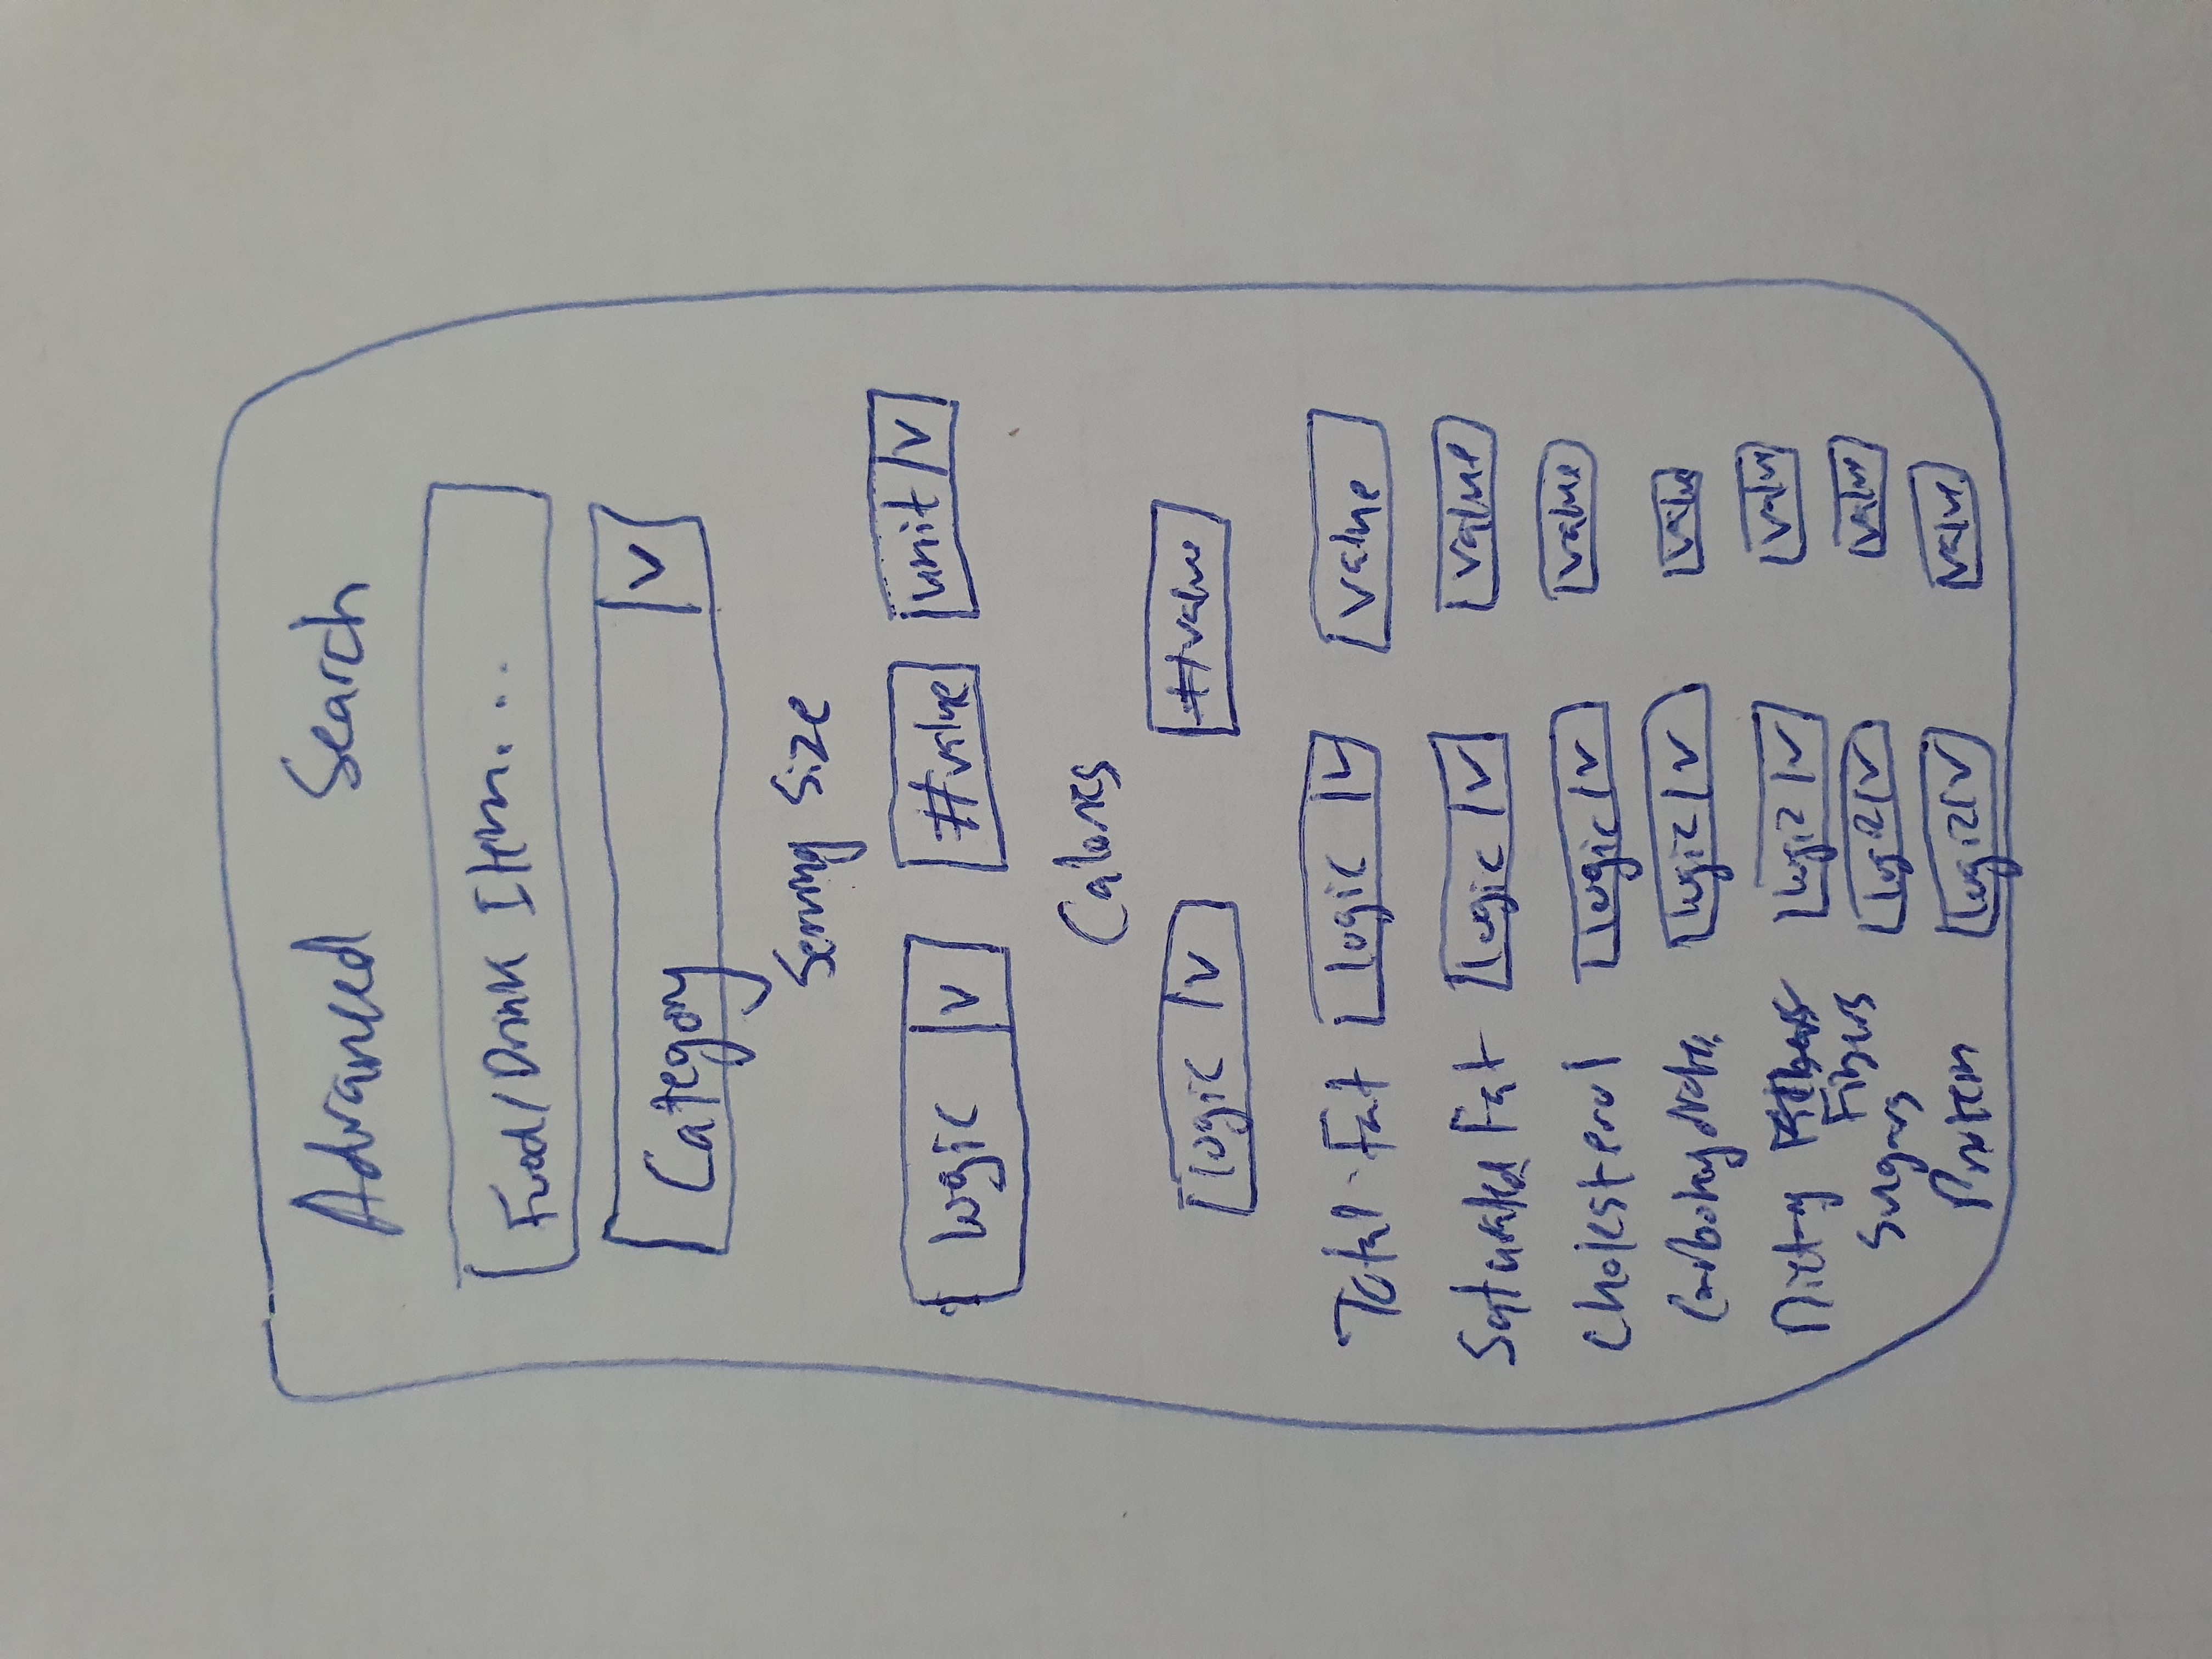 Advanced Search
Food/Drink Item....
Category V
Serving Size
logic V #value unit V
Calories
logic V #value
Total Fat logic V value
Saturated Fat logic V value
Cholesterol logic V value
Carbohydrates logic V value
Dietary logic V value
Fibers
Sugars logic V value
Protein logic V value